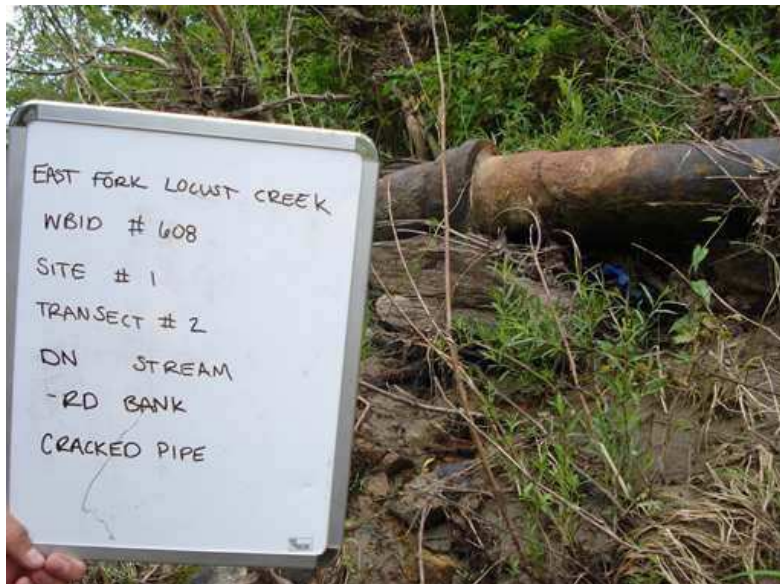 EAST FORK LOCUST CREEK
WBID # 608
SITE # 1
TRANSECT # 2
DN STREAM
-RD BANK
CRACKED PIPE